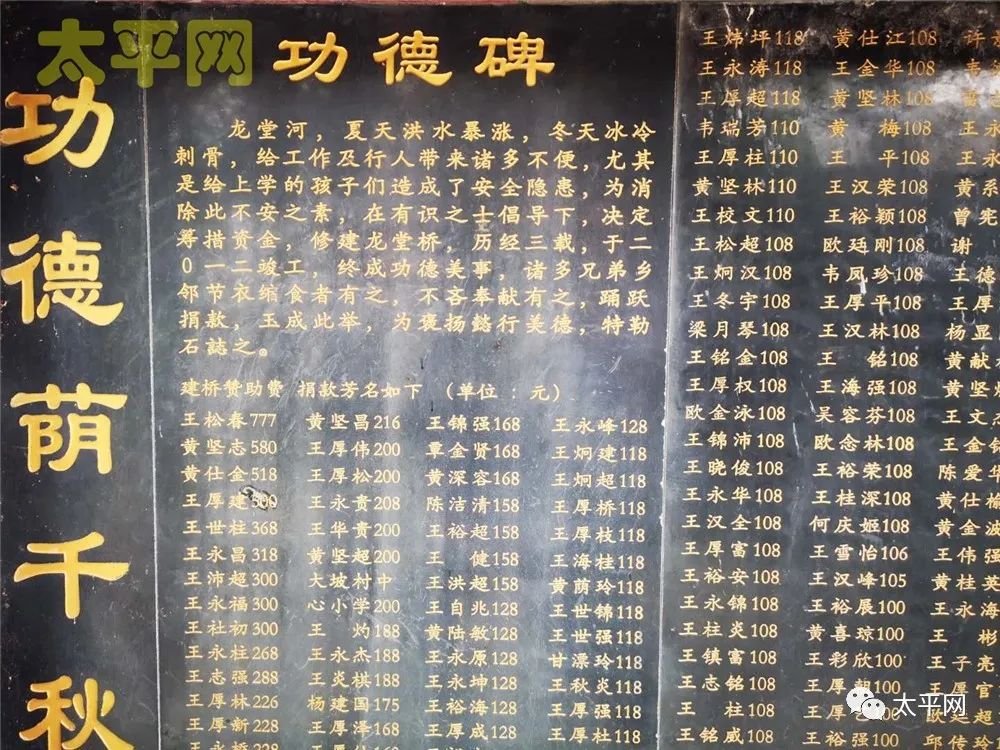 太平网
功德荫千秋
功德碑
龙堂河，夏天洪水暴涨，冬天冰冷
刺骨，给工作及行人带来诸多不便，尤其
是给上学的孩子们造成了安全隐患，为消
除此不安之素，在有识之士倡导下，决定
筹措资金，修建龙堂桥，历经三载，于二
0一二竣工，终成功德美事，诸多兄弟乡
邻节衣缩食者有之，不吝奉献有之，踊跃
捐款，玉成此举，为褒扬懿行美德，特勒
石誌之。
建桥赞助费 捐款芳名如下 （单位：元）
王松春777 黄坚昌216 王锦强168 王永峰128
黄坚志580 王厚伟200 覃金贤168 王炯建118
黄仕金518 王厚松200 黄深容168 王炯超118
王厚建 王永贵208 陈洁清158 王厚桥118
王世柱368 王华贵200 王裕超158 王厚枝118
王永昌318 黄坚超200 王健158 王海桂118
王沛超300 大坡村中 王洪超158 黄荫玲118
王永福300 心小学200 王自兆128 王世锦118
王社初300 王灼188 黄陆敏128 王世强118
王永柱268 王永杰188 王永原128 甘漂玲118
王志强288 王炎棋188 王永坤128 王秋炎118
王厚林226 杨建国175 王裕海128 王厚强118
王厚新228 王厚泽168 王厚成128 王厚杜118
王永桥228
王炜坪118 黄仕江108
王永涛118 王金华108
王厚超118 黄坚林108
韦瑞芳110 黄梅108 王永
王厚柱110 王平108 王永
黄坚林110 王汉荣108 黄系
王校文110 王裕颖108 曾宪
王松超108 欧廷刚108 谢
王炯汉108 韦凤珍108 王德
王冬宇108 王厚平108 王厚
梁月琴108 王汉林108 杨显
王铭金108 王铭108 黄献
王厚权108 王海强108 黄坚
欧金泳108 吴容芬108 王文
王锦沛108 欧念林108 王金
王晓俊108 王裕荣108 陈爱华
王永华108 王桂深108 黄仕
王汉全108 何庆姬108 黄金波
王厚富108 王雪怡106 王伟强
王裕安108 王汉峰105 黄桂英
王永锦108 王裕展100 王永海
王柱炎108 黄喜琼100 王彬
王镇富108 王彩欣100 王子亮
王志铭108 王厚朝100 王厚官
王柱108 王厚 108 欧廷超
王铭威108 王裕强100 邱传珍
太平网